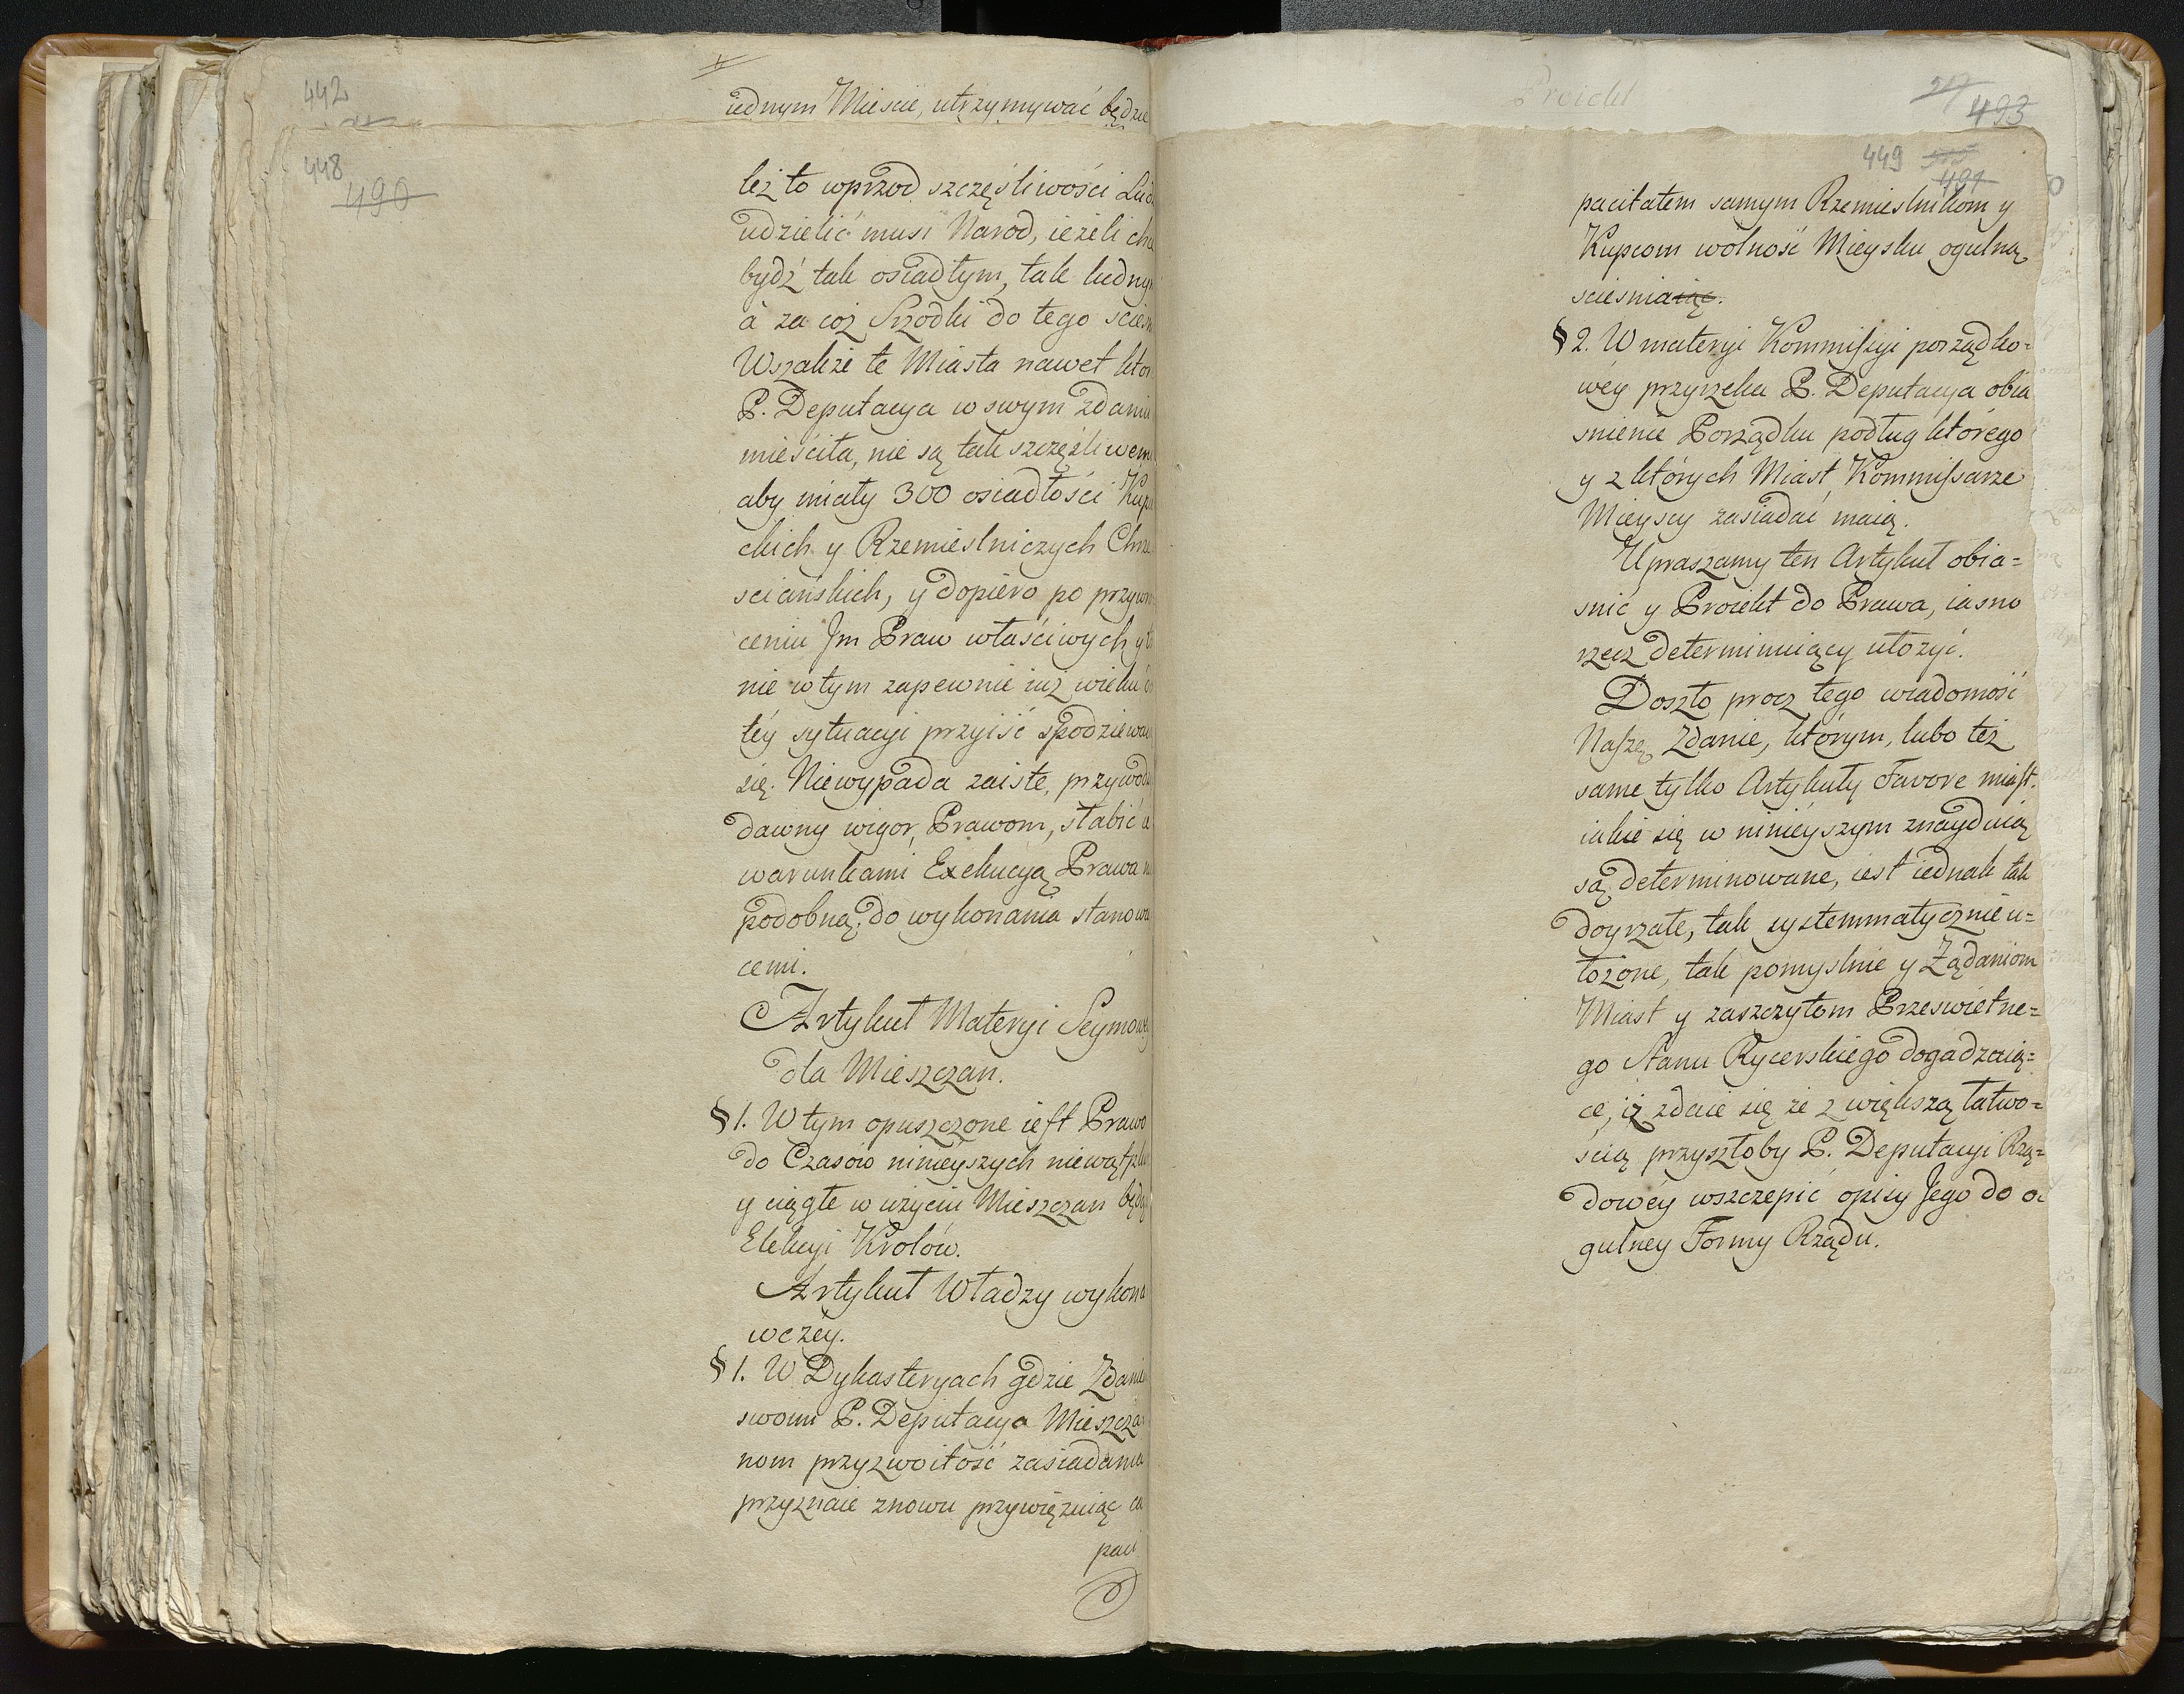 442
iednym Mieście, utrzymywać będzie
448
490
leż to wprzod szczęśliwości Lud
udzielić musi Narod, ieżeli chc
bydź tak osiadłym, tak ludny
à za coż Srzodki do tego ścieśn
Wszakże te Miasta nawet ktor
P. Deputacya w swym zdaniu
mieściła, nie są tak szczęśliwem
aby miały 300 osiadłości Kup
ckich y Rzemieślniczych Chrze
sciańskich, y dopiero po przywro
ceniu Jm Praw właściwych y
nie w tym zapewnie iuż wieku
téy sytuacyi przyiść spodziewa
się. Niewypada zaiste, przywod
dawny wigor Prawom, słabić
warunkami Exekucyą Prawa n
podobną do wykonania stanow
cemi.
Artykuł Materyi Seymowe
dla Mieszczan.
§ 1. W tym opuszczone iest Prawo
do Czasow ninieyszych niewątpl
y ciągłe w użyciu Mieszczan będ
Elekcyi Krolów.
Artykuł Władzy wykona
wczéy.
§ 1. W Dykasteryach gdzie Zdanie
swoim P. Deputacya Mieszcza
nom przyzwoitość zasiadania
przyznaie znowu przywięzuiąc ca
paci
Proiekt
517
493
449 515
491
pacitatem samym Rzemieslnikom y
Kupcom wolność Mieyską ogulną
sciesniaiąc.
§ 2. W materyi Kommissyi porządko=
wéy przyrzeka P. Deputacya obia
snienie Porządku podług którego
y z których Miast Kommissarze
Mieyscy zasiadać maią.
Upraszamy ten Artykuł obia=
snić y Proiekt do Prawa, iasno
rzecz determinuiący ułożyć.
Doszło procz tego wiadomość
Naszę Zdanie, którym, lubo też
same tylko Artykuły Favore miast.
iakie się w ninieyszym znayduią
są determinowane, iest iednak tak
doyrzałe, tak systemmatycznie u=
łożone, tak pomyslnie y Żądaniom
Miast y zaszczytom Przeswietne=
go Stanu Rycerskiego dogadzaią=
ce, iż zdaie się że z większą łatwo=
ścią przyszłoby P. Deputacyi Rzą=
dowéy wszczepić opisy Jego do o=
gulney Formy Rządu.